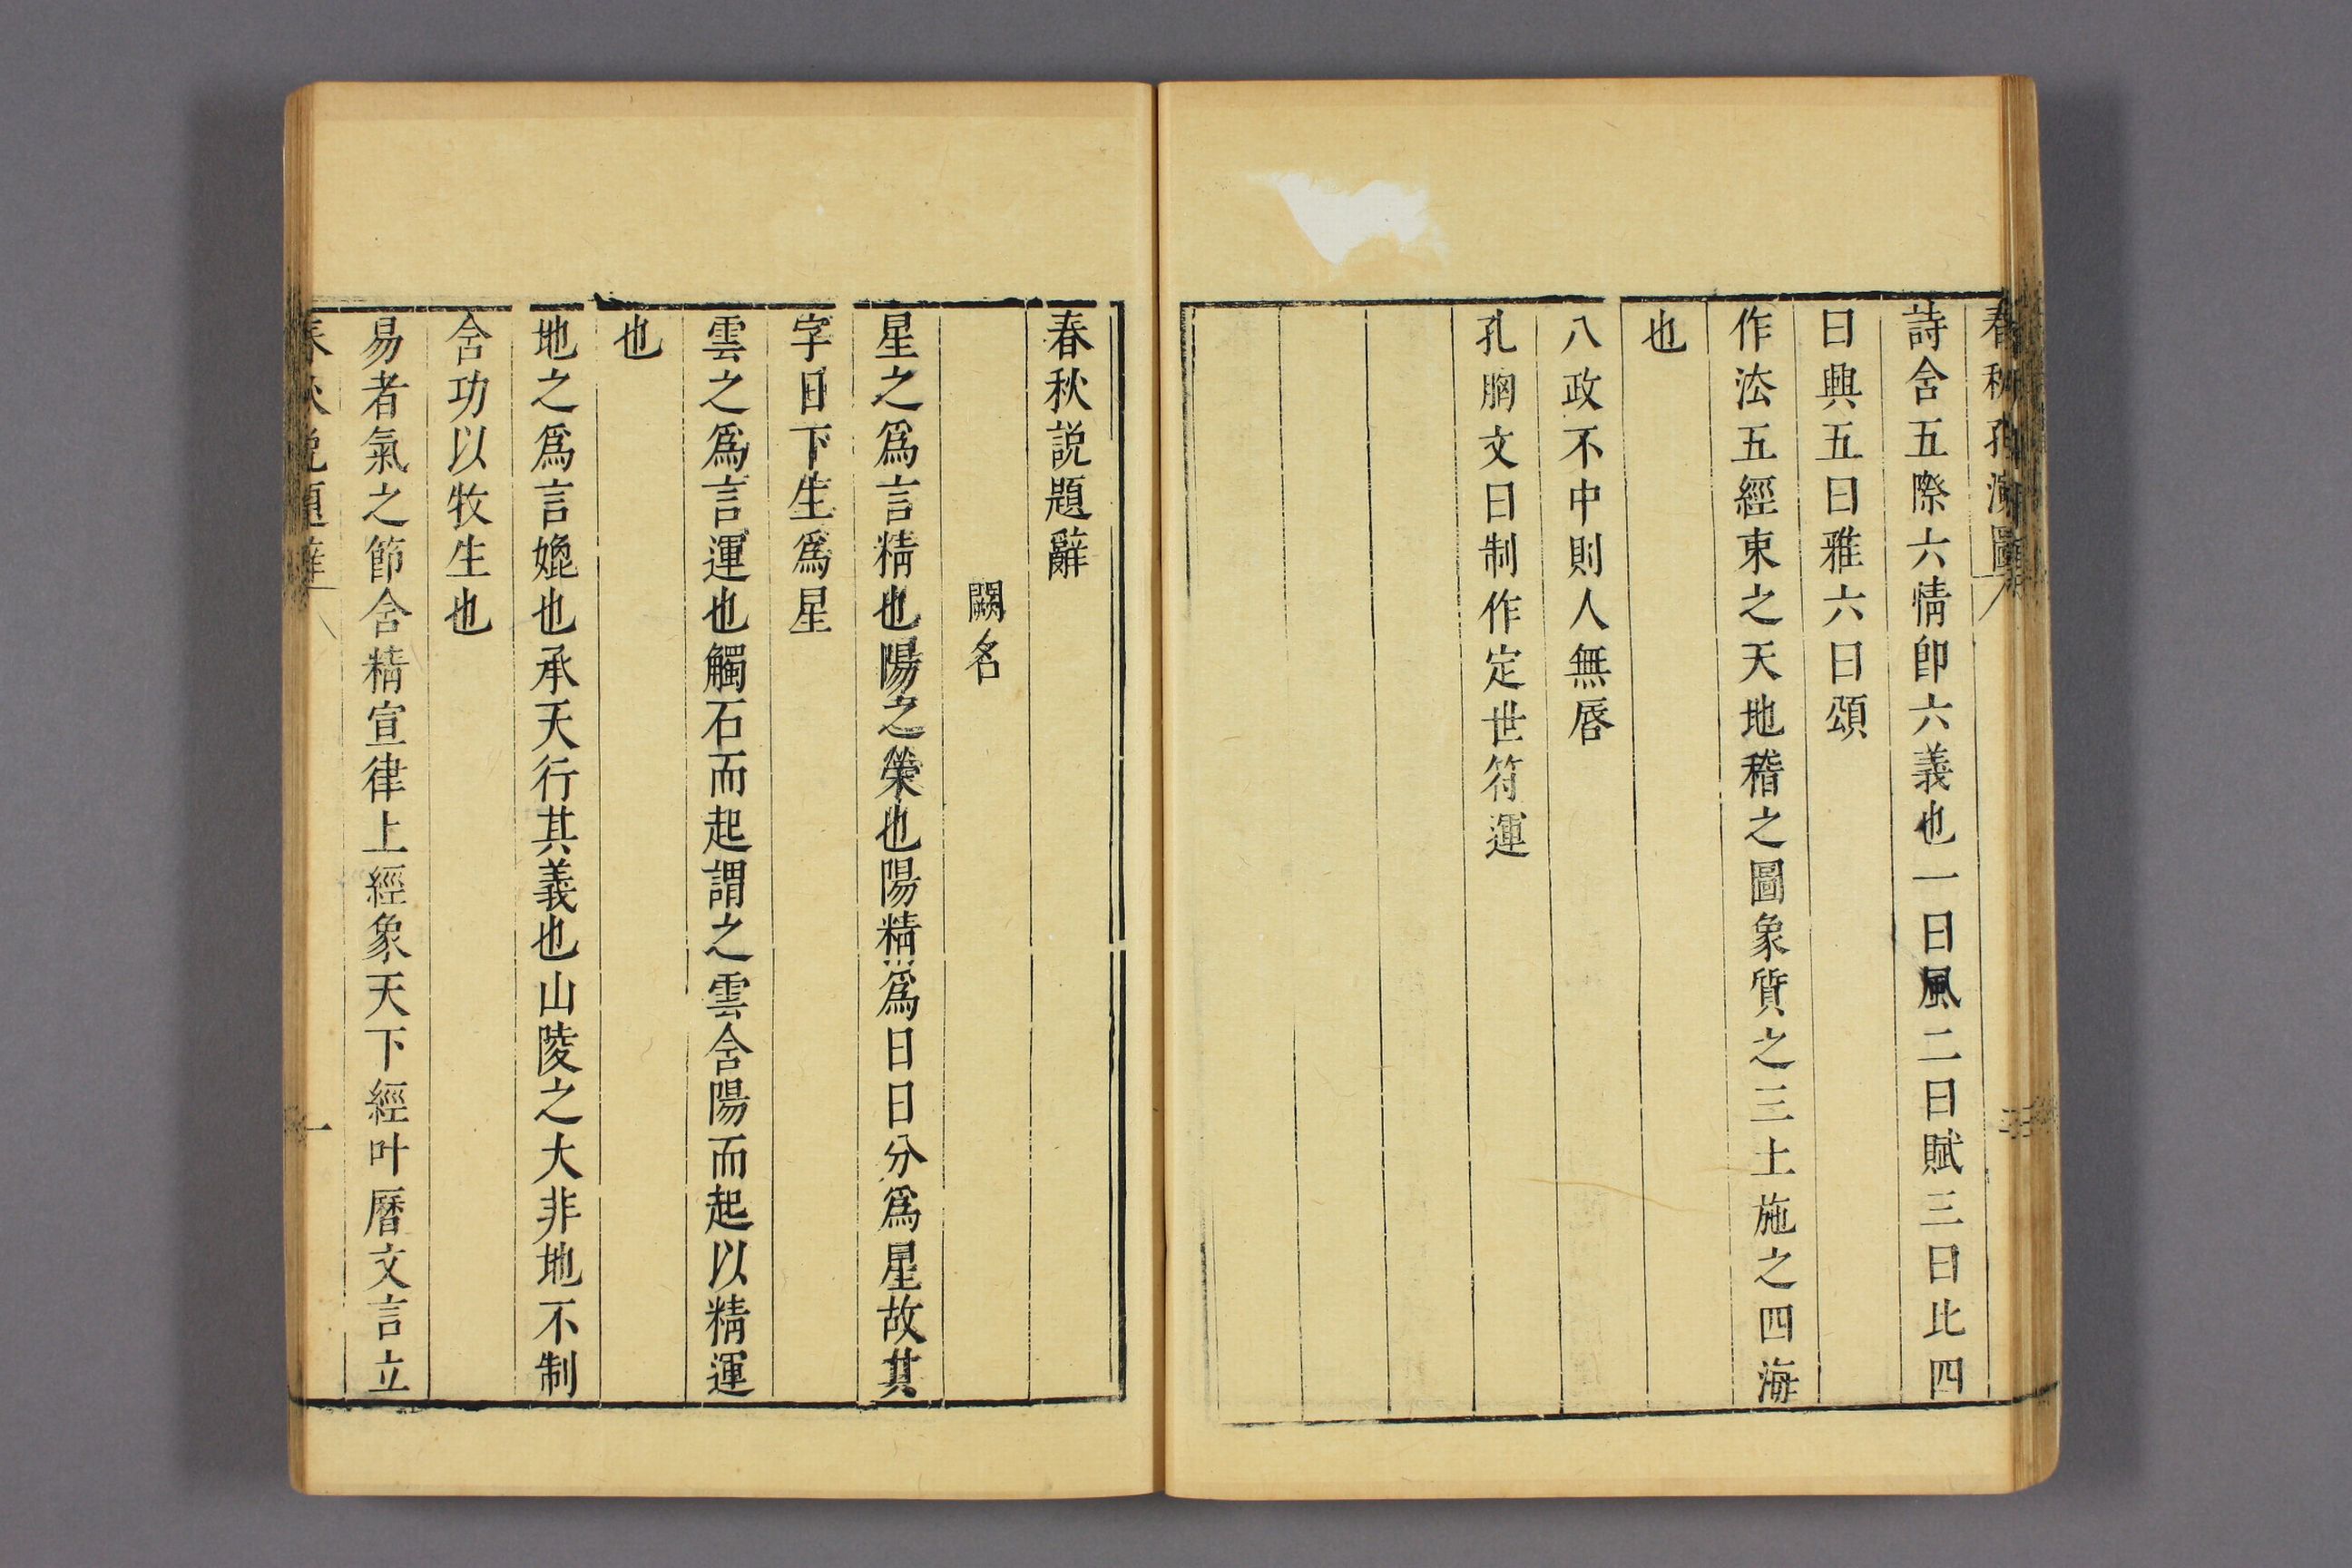 春秋孔演圖
詩含五際六情卽六義也一曰風二曰賦三曰比四
曰興五曰雅六曰頌
作法五經東之天地稽之圖象質之三土施之四海
也
八政不中則人無唇
孔胸文曰制作定世符運
春秋説題辭
闕名
星之爲言精也陽之榮也陽精爲日日分爲星故其
字日下生爲星
雲之爲言運也觸石而起謂之雲含陽而起以精運
也
地之爲言媿也承天行其義也山陵之大非地不制
含功以牧生也
易者氣之節含精宣律上經象天下經叶曆文言立
春秋説題辭
一